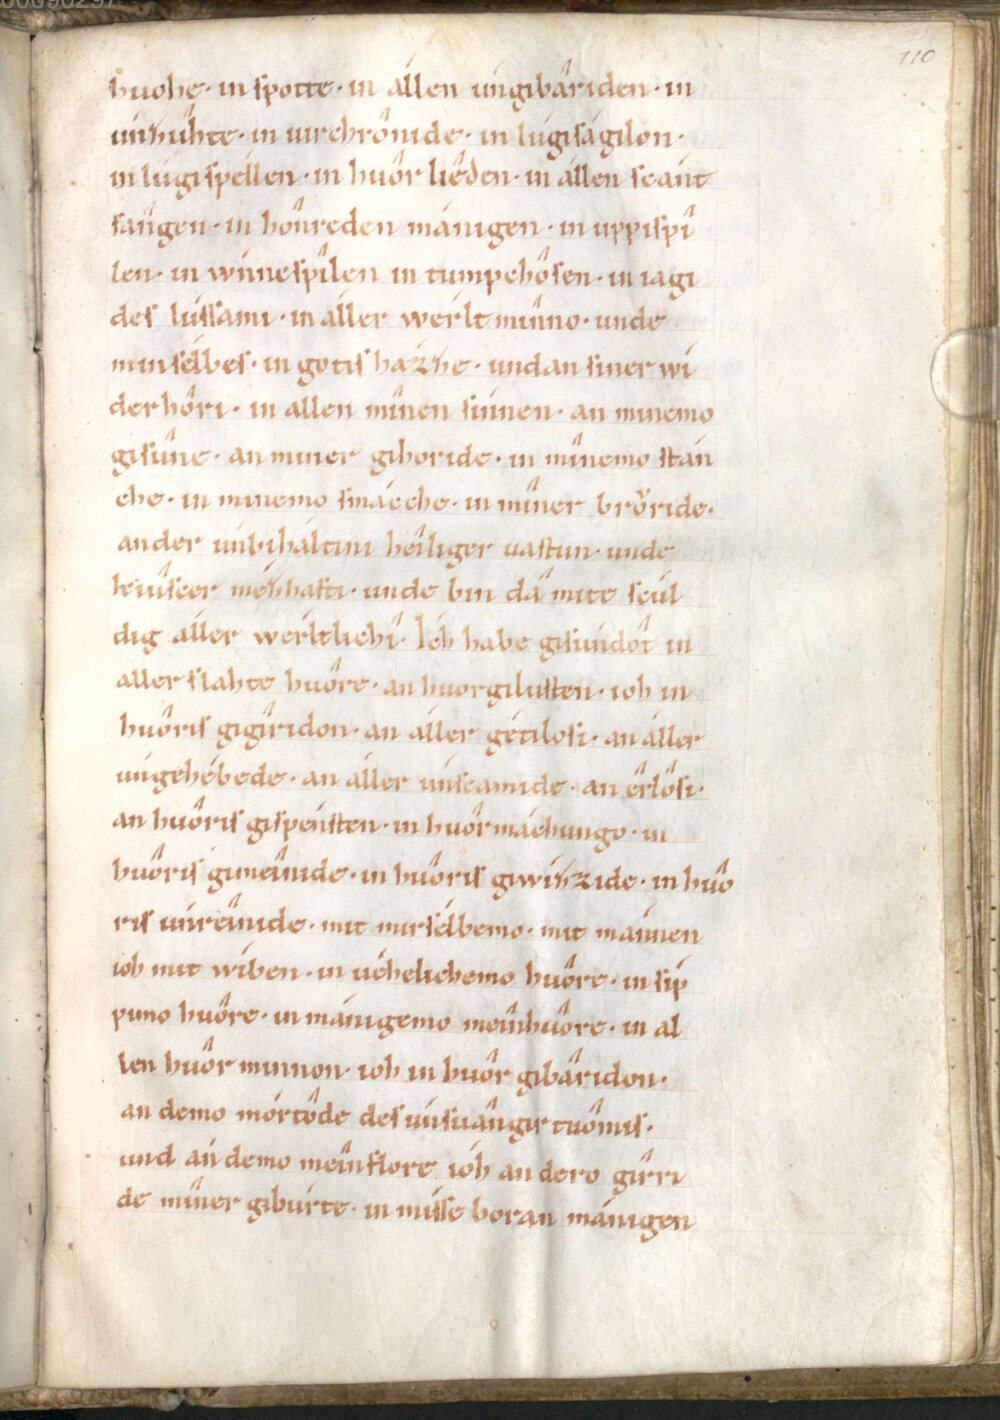 110
huohe · in spotte · in állen úngibâriden · in
únzúhte · in virchrônide · in lúgiságilon ·
in lúgispéllen · in huôr liêden · in állen scánt
sángen · in hônreden mánigen · in uppispî
len · in wúnnespîlen in tumpchôsen · in iagi
des lússami · in áller wérltmínno · unde
min sélbes · in gotis házze · undan siner wi
derhôri · in allen mînen sínnen · an minemo
gisûne · an miner gihoride · in mînemo stán
che · in minemo smácche · in mîner brôride ·
ander únbiháltini heîliger uastun · unde
kiûscer mézhafti · unde bin dâ mite scúl
dig áller wérltlichî · Ich habe gisúndôt in
aller slahte huôre · an huorgilusten · ioh in
huôris gigîridon · an áller gétilosi · an áller
úngehébede · an áller únscamide · an êrlôsi ·
an huôris gispénsten · in huôrmáchungo · in
huôris gimeînide · in huôris giwízzide · in huô
ris únreînide · mit mirsélbemo · mit mánnen
ioh mit wîben · in uéhelichemo huôre · in síp
pimo huôre · in mánigemo meînhuôre · in al
len huôr minnon · ioh in huôr gibâridon ·
an demo mórtôde des únsuángir tuômis ·
und án demo meînflore ióh an dero gîrri
de mîner gibúrte · in mísse boran mánigen